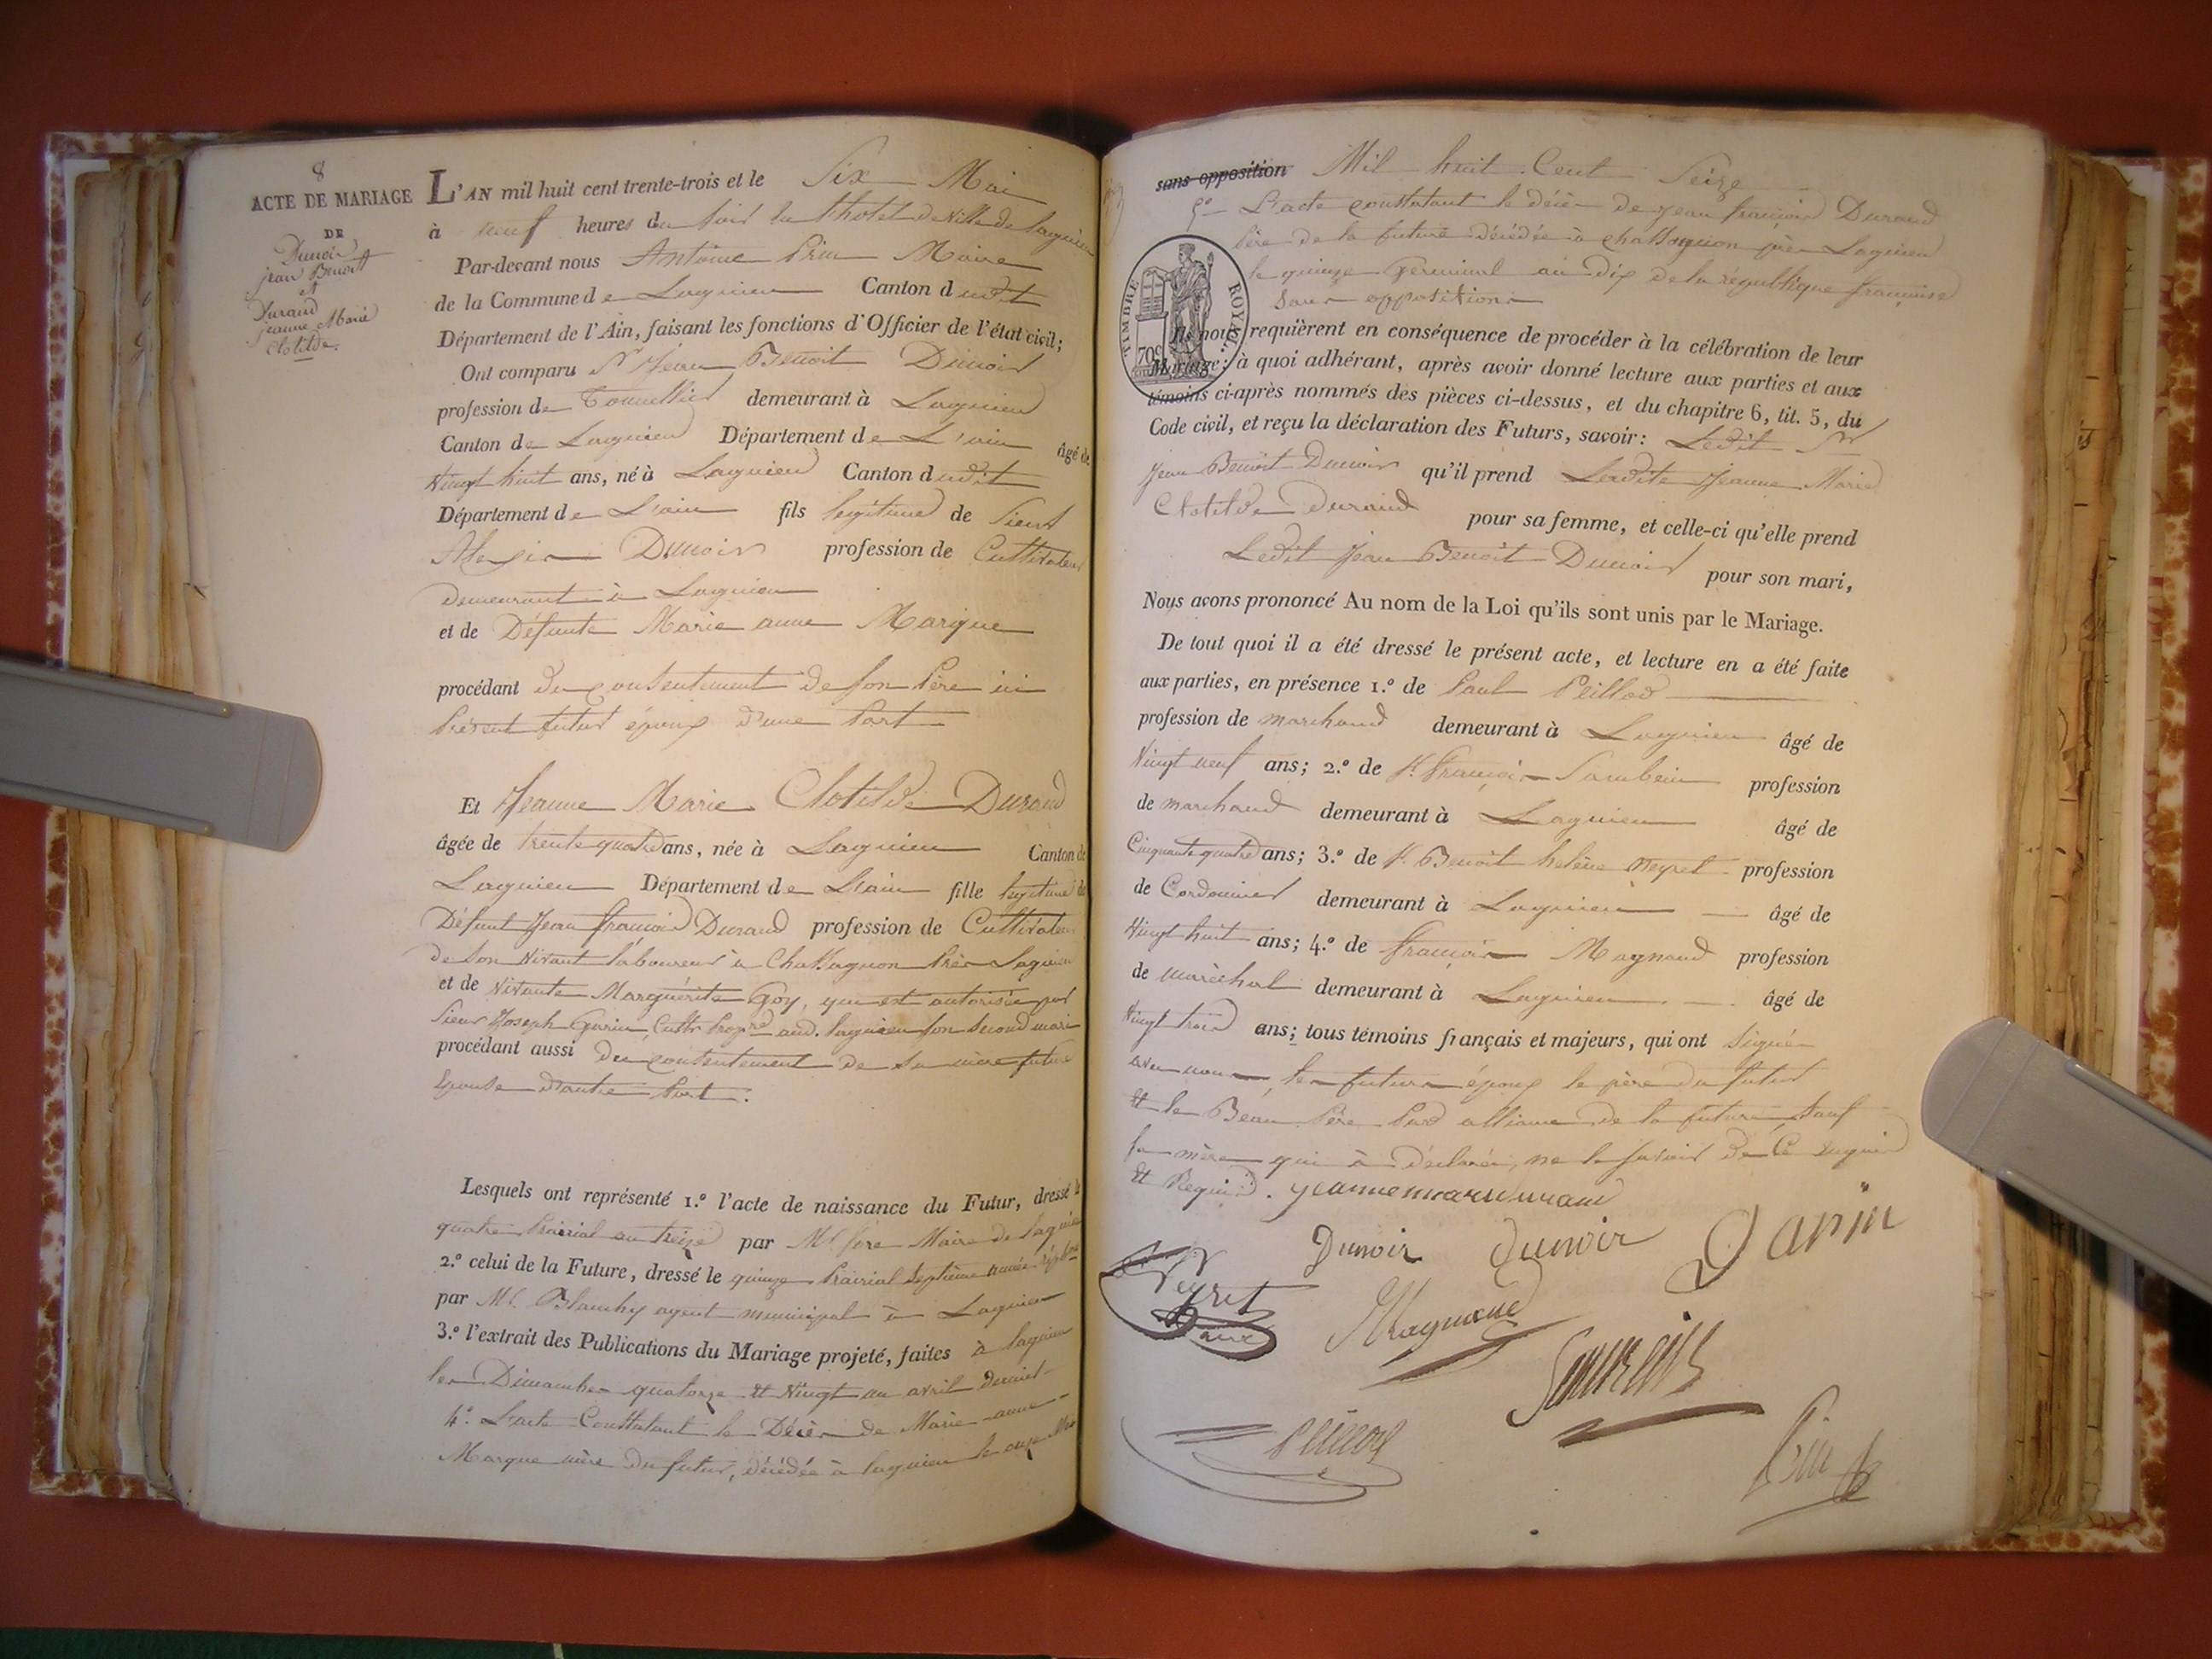 8
ACTE DE MARIAGE
DE
Dunoir
jean Benoit
et
Durand
jeanne Marie
Clotilde.
L'AN mil huit cent trente-trois et le Six Mai
à neuf heures du soir la l'hotel de ville de Lagnieu
Par-devant nous Antoine Prin Maire
de la Commune de Lagnieu Canton dudit
Département de l'Ain, faisant les fonctions d'Officier de l'état civil;
Ont comparu Sr Jean Benoit Dunoir
profession de Tonnellier demeurant à Lagnieu
Canton de Lagnieu Département de L'ain âgé de
Vingt huit ans, né à Lagnieu Canton dudit
Département de L'ain fils légitime de Sieur
Dunoir profession de Cultivateur
demeurant à Lagnieu
et de Défunte Marie anne Marque
procédant du consentement de son Père ici
Présent futur époux d'une Part
Et Jeanne Marie Clotilde Durand
âgée de trente quatre ans, née à Lagnieu Canton de
Lagnieu Département de L'ain fille légitime de
Défunt Jean françois Durand profession de Cultivateur
de son Vivant laboureur à Chattagnon Près Lagnieu
et de Vivante Marguérite Goy, qui est autorisée par
Sieur Joseph Garin Cultr Propre aud. Lagnieu son Second mari
procédant aussi du consentement de sa mère future
Epouse d'autre Part.
Lesquels ont représenté 1.º l'acte de naissance du Futur, dressé le
quatre Prairial an treize par Mr Maire de Lagnieu
2.º celui de la Future, dressé le quinze Prairial Septième année
par Mr. Blanchy agent municipal à Lagnieu
3.º l'extrait des Publications du Mariage projeté, faites à Lagnieu
les Dimanches quatorze et Vingt un avril dernier
4º. L'acte Constatant le Décès de Marie anne
Marque mère du futur, décédée à lagnieu le onze
sans opposition Mil huit Cent Seize
5º L'acte constatant le décès de jean françois Durand
Père de la future décédée à chattagnion près Lagnieu
le quinze Germinal an Dix de la république française
Sans oppositions
TIMBRE ROYAL
70c
Ils nous requièrent en conséquence de procéder à la célébration de leur
Mariage: à quoi adhérant, après avoir donné lecture aux parties et aux
témoins ci-après nommés des pièces ci-dessus, et du chapitre 6, tit. 5, du
Code civil, et reçu la déclaration des Futurs, savoir: Ledit Sr
Jean Benoit Dunoir qu'il prend Ladite Jeanne Marie
Clotilde Durand pour sa femme, et celle-ci qu'elle prend
Ledit Jean Benoit Dunoir pour son mari,
Nous avons prononcé Au nom de la Loi qu'ils sont unis par le Mariage.
De tout quoi il a été dressé le présent acte, et lecture en a été faite
aux parties, en présence 1.º de Paul Peillod
profession de marchand demeurant à Lagnieu âgé de
Vingt neuf ans; 2.º de Sr. françois profession
de marchand demeurant à Lagnieu âgé de
Cinquante quatre ans; 3.º de Sr Benoit helène Neyret profession
de Cordonnier demeurant à Lagnieu âgé de
Vingt huit ans; 4.º de françois Magnand profession
de maréchal demeurant à Lagnieu âgé de
Vingt trois ans; tous témoins français et majeurs, qui ont Signé
avec nous, les futurs époux le père du futur
et le Beau Père Par alliance de la future, Sauf
sa mère qui à déclarée, ne le Savoir de Ce enquis
et Requis. jeanne marie durand
Dunoir dunoir Garin
Neyret
ainé
Magnand
peillod
Prin